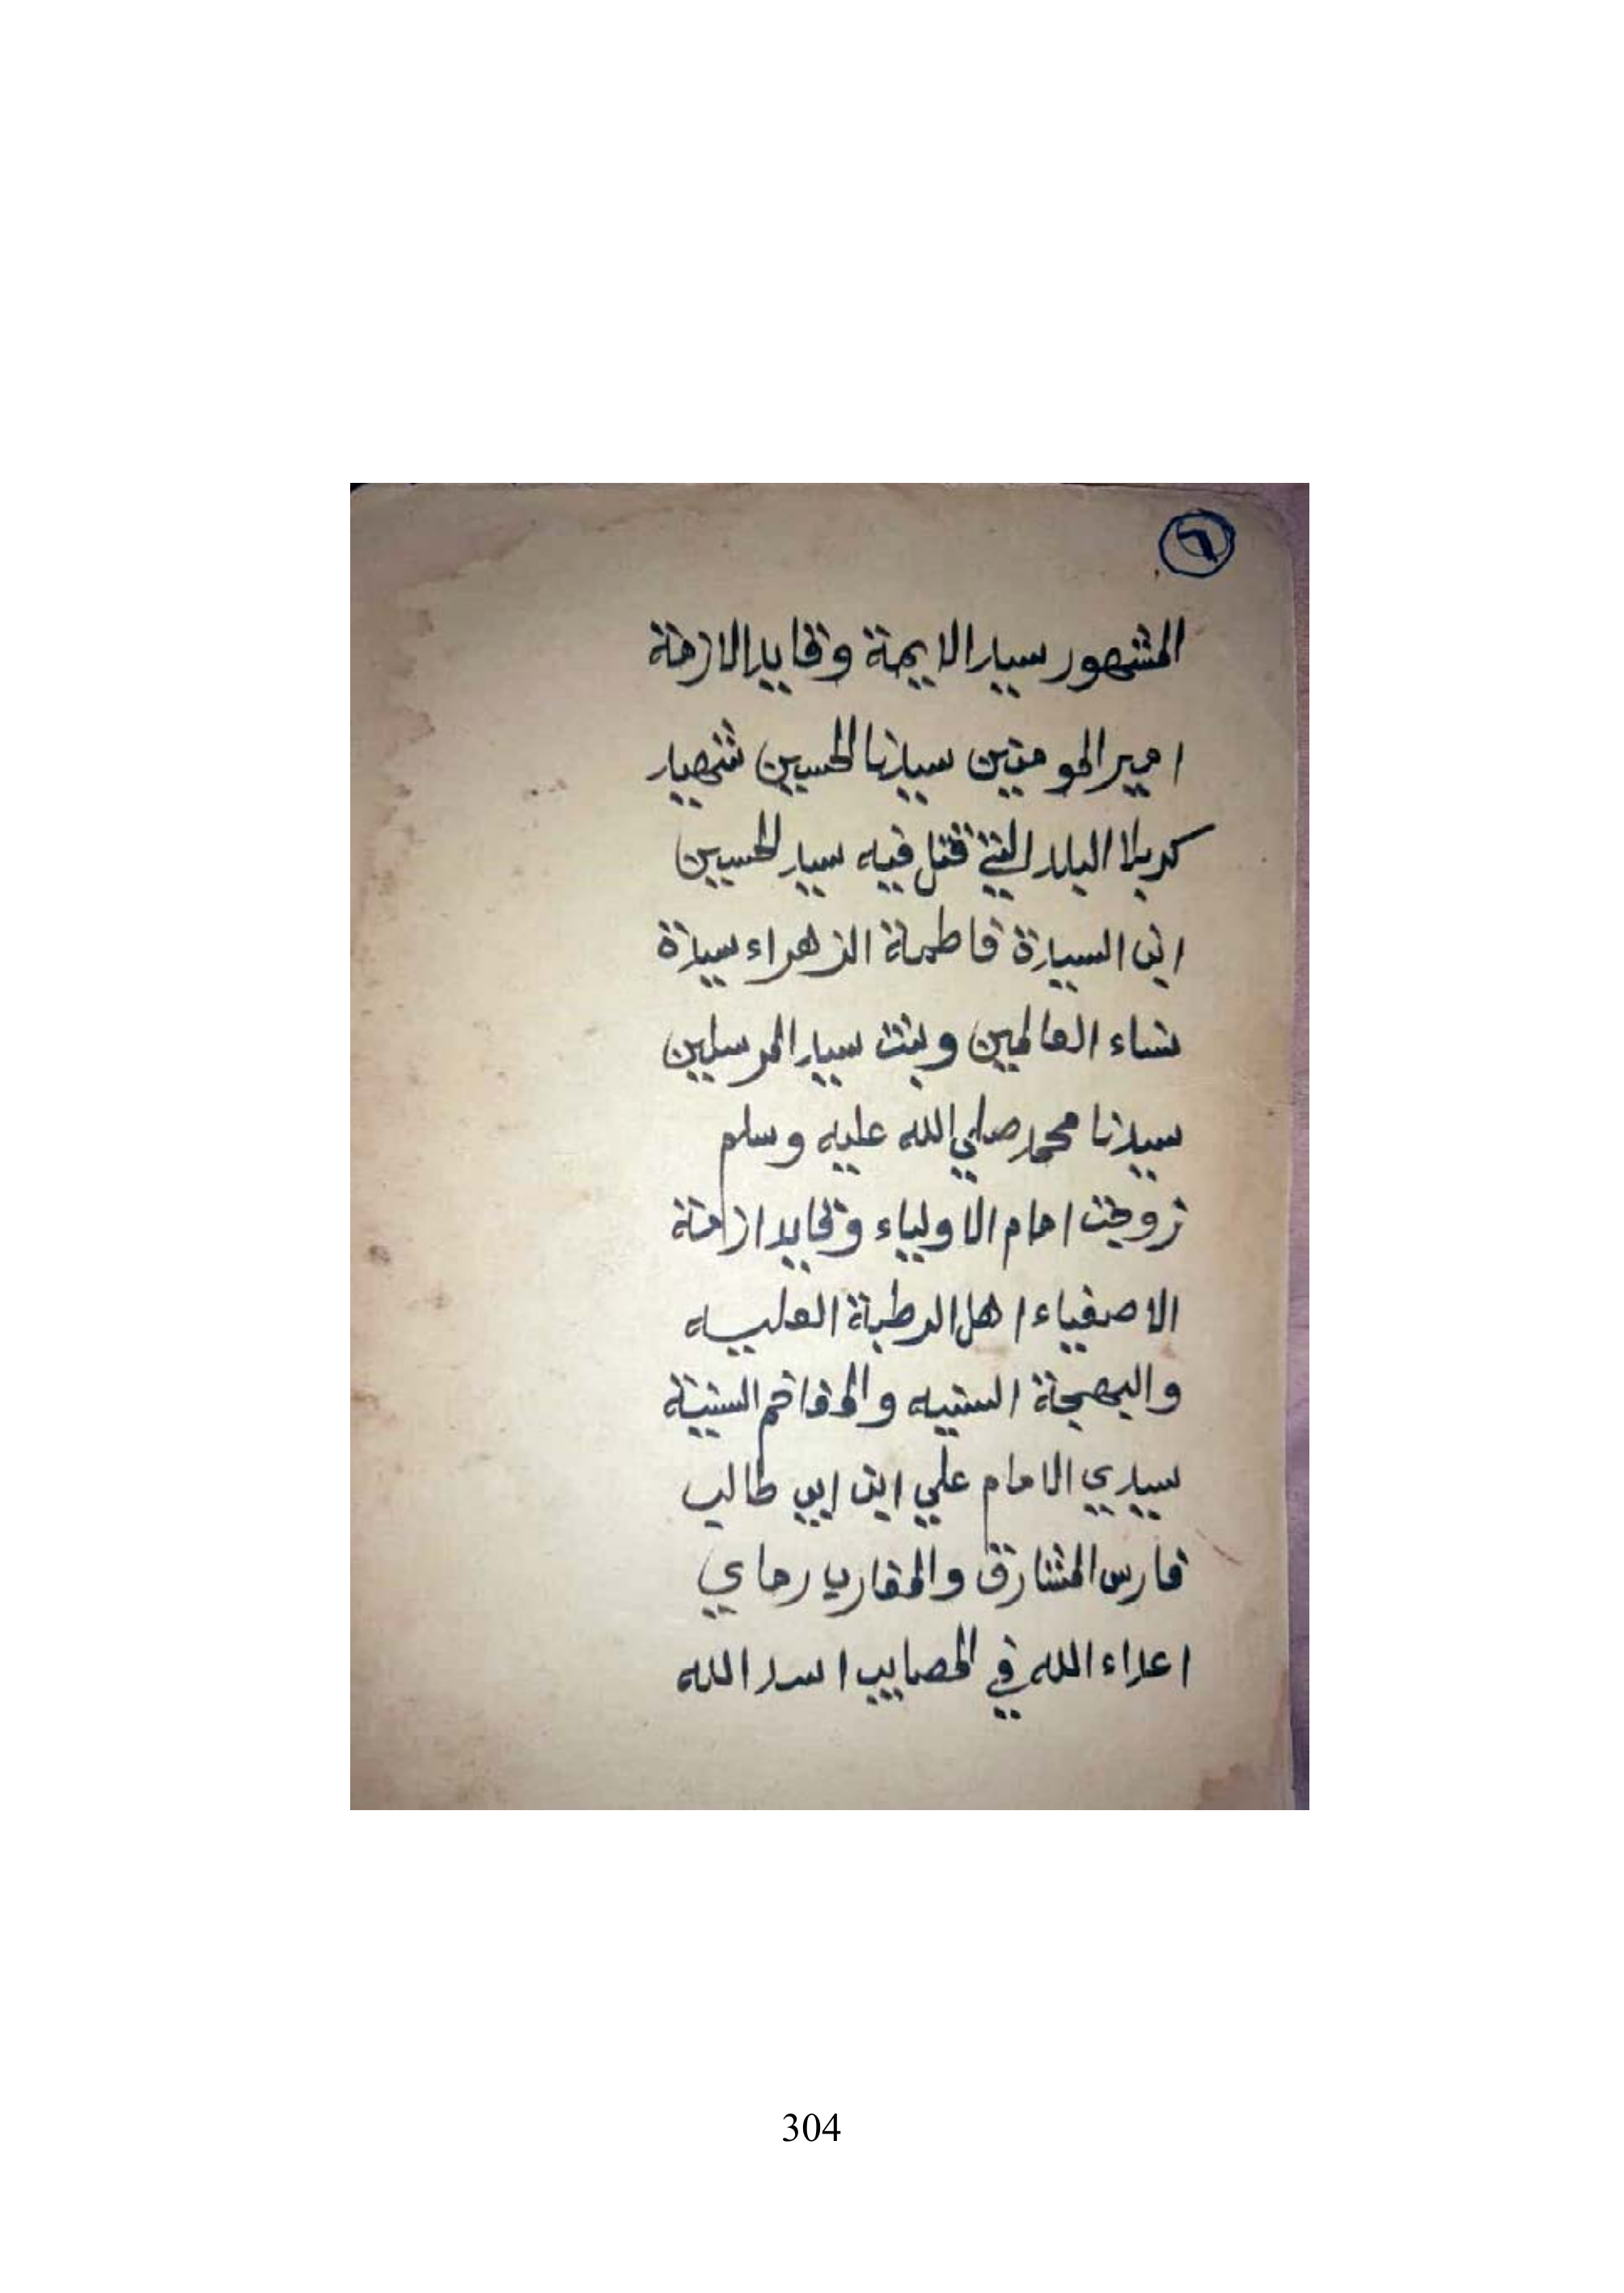 ٦
المشهور سيد الايمة وقايد الازمة
امير المومنين سيدنا الحسين شهيد
كربلا البلد التي قتل فيه سيد الحسين
ابن السيدة فاطمة الزهراء سيدة
نساء العالمين وبنت سيد المرسلين
سيدنا محمد صلي الله عليه وسلم
زوجت امام الاولياء وقايد ازمة
الاصفياء اهل الرطبة العليه
والبهجة السنيه والمفاخم السنية
سيدي الامام علي ابن ابي طالب
فارس المشارق والمغارب رماي
اعداء الله في المصايب اسد الله
304